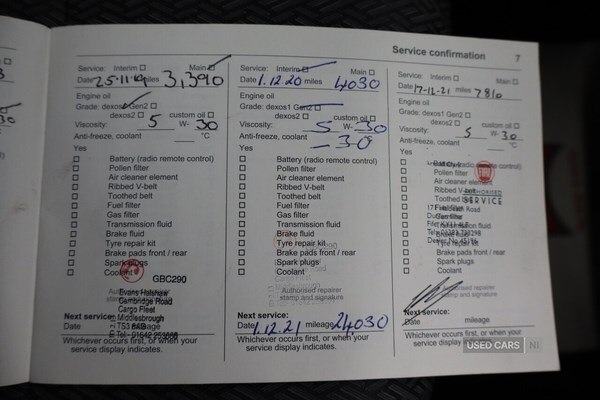 Service confirmation 7
Service: Interim Main
Date 25.11.19 miles 3,390
Engine oil
Grade: dexos1 Gen2
dexos2 custom oil
Viscosity: 5 W- 30
Anti-freeze, coolant °C
Yes
Battery (radio remote control)
Pollen filter
Air cleaner element
Ribbed V-belt
Toothed belt
Fuel filter
Gas filter
Transmission fluid
Brake fluid
Tyre repair kit
Brake pads front / rear
Spark plugs
Coolant
GBC290
Evans Halshaw
Cambridge Road
Cargo Fleet
Next service: Middlesbrough
Date TS3 8AG mileage
Whichever occurs first, or when your
service display indicates.
Service: Interim Main
Date 1.12.20 miles 4030
Engine oil
Grade: dexos1 Gen2
dexos2 custom oil
Viscosity: 5 W- 30
Anti-freeze, coolant -30 °C
Yes
Battery (radio remote control)
Pollen filter
Air cleaner element
Ribbed V-belt
Toothed belt
Fuel filter
Gas filter
Transmission fluid
Brake fluid
Tyre repair kit
Brake pads front / rear
Spark plugs
Coolant
Authorised repairer
stamp and signature
Next service:
Date 1.12.21 mileage 24,030
Whichever occurs first, or when your
service display indicates.
Service: Interim Main
Date 17-12-21 miles 7810
Engine oil
Grade: dexos1 Gen2
dexos2 custom oil
Viscosity: 5 W- 30
Anti-freeze, coolant °C
Yes
Pollen filter FIAT
Air cleaner element
Ribbed V-belt AUTHORISED
Toothed belt SERVICE
Fuel filter
Gas filter
Transmission fluid
Brake fluid
Tyre repair kit
Brake pads front / rear
Spark plugs
Coolant
Authorised repairer
stamp and signature
Next service:
Date mileage
Whichever occurs first, or when your
service display indicates.
USED CARS NI